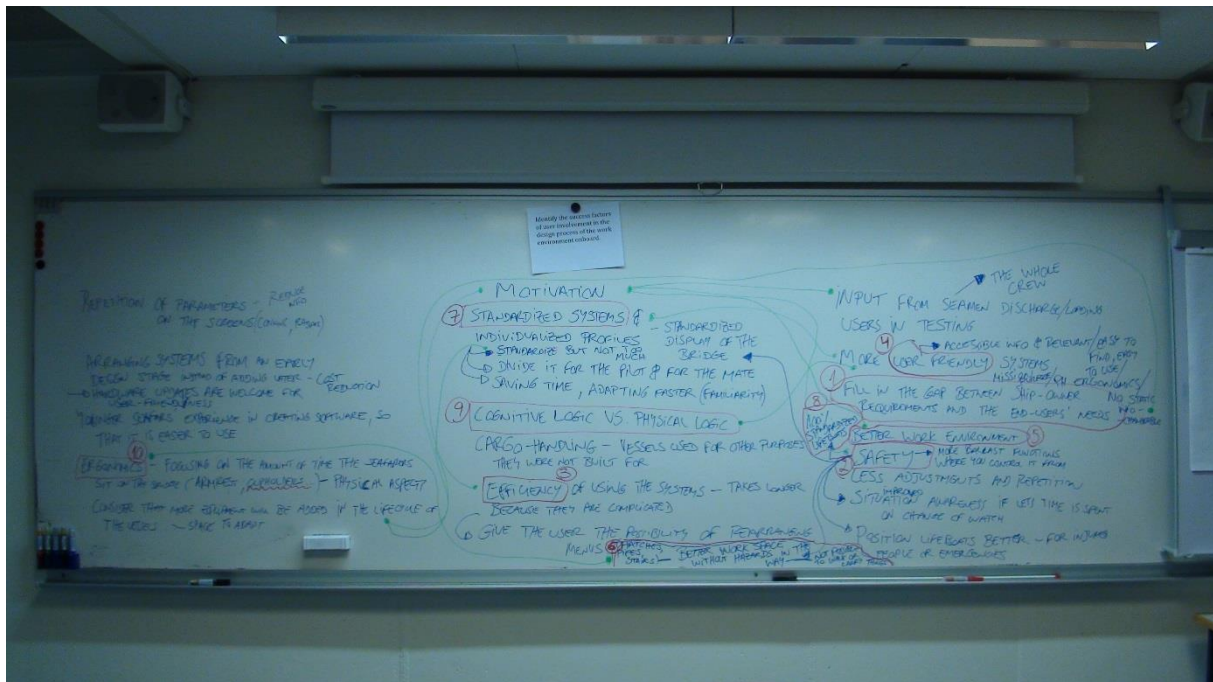 Identify the success factors
of user involvement in the
design process of the work
environment onboard.
REPETITION OF PARAMETERS -
ON THE SCREENS
ARRANGING SYSTEMS FROM AN EARLY
DESIGN STAGE INSTEAD OF ADDING LATER - COST
REDUCTION
HARDWARE UPDATES ARE WELCOME FOR
USER-FRIENDLINESS
EXPERIENCE IN CREATING SOFTWARE, SO
THAT IT IS EASER TO USE
10
ERGONOMICS - FOCUSING ON THE AMOUNT OF TIME THE SEAFARERS
SIT ON THE (ARMREST, ) - PHYSICAL ASPECT
CONSIDER THAT MORE EQUIPMENT WILL BE ADDED IN THE LIFECYCLE OF
THE VESSEL - SPACE TO ADAPT
MOTIVATION
7 STANDARDIZED SYSTEMS &
INDIVIDUALIZED PROFILES
STANDARDIZE BUT NOT TOO
MUCH
DIVIDE IT FOR THE PILOT & FOR THE MATE
SAVING TIME, ADAPTING FASTER (FAMILIARITY)
- STANDARDIZED
DISPLAY OF THE
BRIDGE
9 COGNITIVE LOGIC VS PHYSICAL LOGIC
CARGO-HANDLING - VESSELS USED FOR OTHER PURPOSES
THEY WERE NOT BUILT FOR
3
EFFICIENCY OF USING THE SYSTEMS - TAKES LONGER
BECAUSE THEY ARE COMPLICATED
GIVE THE USER THE POSIBILITY OF REARRANGING
MENUS
6 HATCHES,
PIPES,
STAIRS
- BETTER WORK SPACE
WITHOUT HAZARDS IN THE
WAY
THE WHOLE
CREW
INPUT FROM SEAMEN DISCHARGE/LOADING
USERS IN TESTING
4
ACCESSIBLE INFO & RELEVANT/EASY TO
FIND, EASY
TO USE/
MORE USER FRIENDLY SYSTEMS
ERGONOMICS/
NO STATIC
1
FILL IN THE GAP BETWEEN SHIP-OWNER
REQUIREMENTS AND THE END-USERS' NEEDS
8
STANDARDIZED
LIFEBOATS
BETTER WORK ENVIRONMENT 5
2 SAFETY - MORE BALLAST FUNCTIONS
WHERE YOU CONTROL IT FROM
LESS ADJUSTMENTS AND REPETITION
IMPROVED
SITUATION AWARENESS IF LESS TIME IS SPENT
ON CHANGE OF WATCH
POSITION LIFEBOATS BETTER - FOR INJURED
PEOPLE OR EMERGENCIES